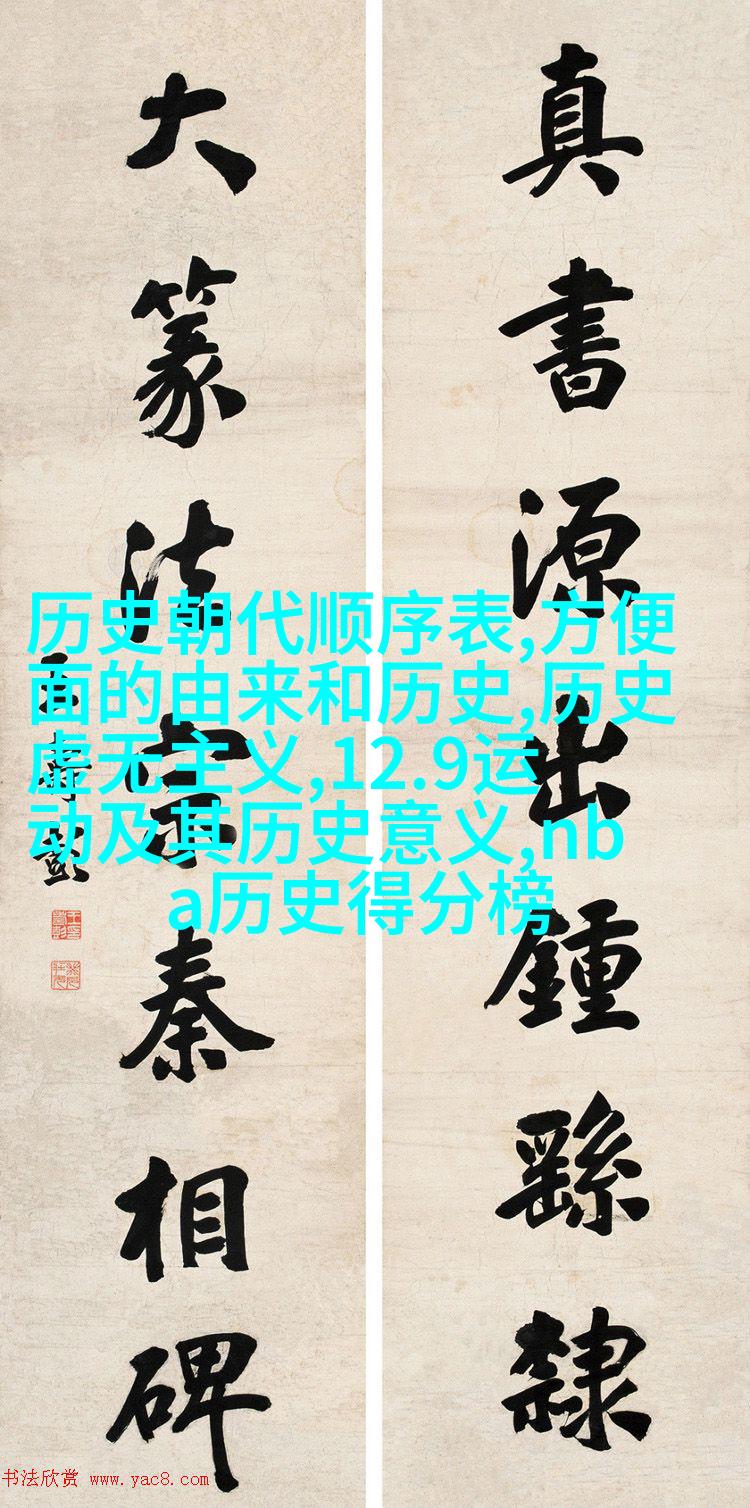 真書源出鍾繇隸
大篆法宗秦相碑
王壽彭
历史朝代顺序表,方便
面的由来和历史,历史
虚无主义,12.9运
动及其历史意义,nb
a历史得分榜
书法欣赏 www.yac8.com